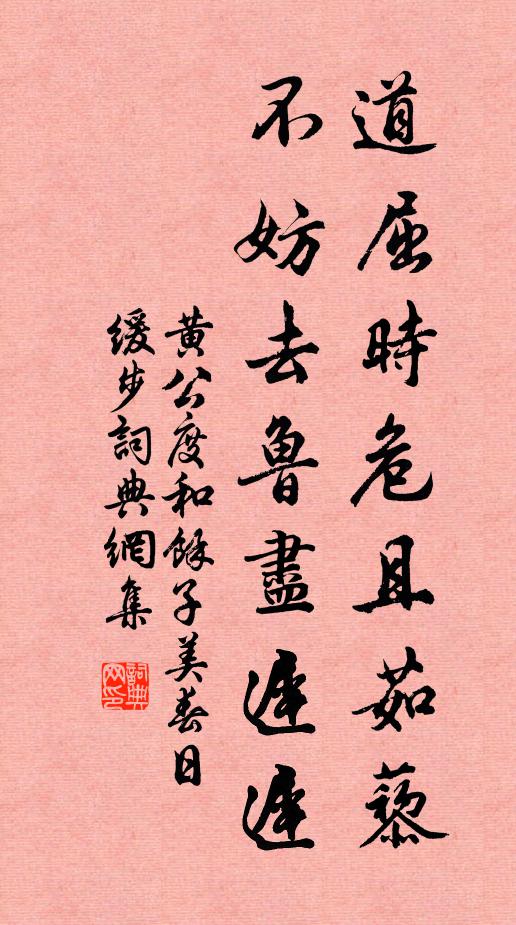 道屈時危且茹藜
不妨去魯盡遲遲
黃公度和餘子美春日
緩步詞典網集
詞典網印